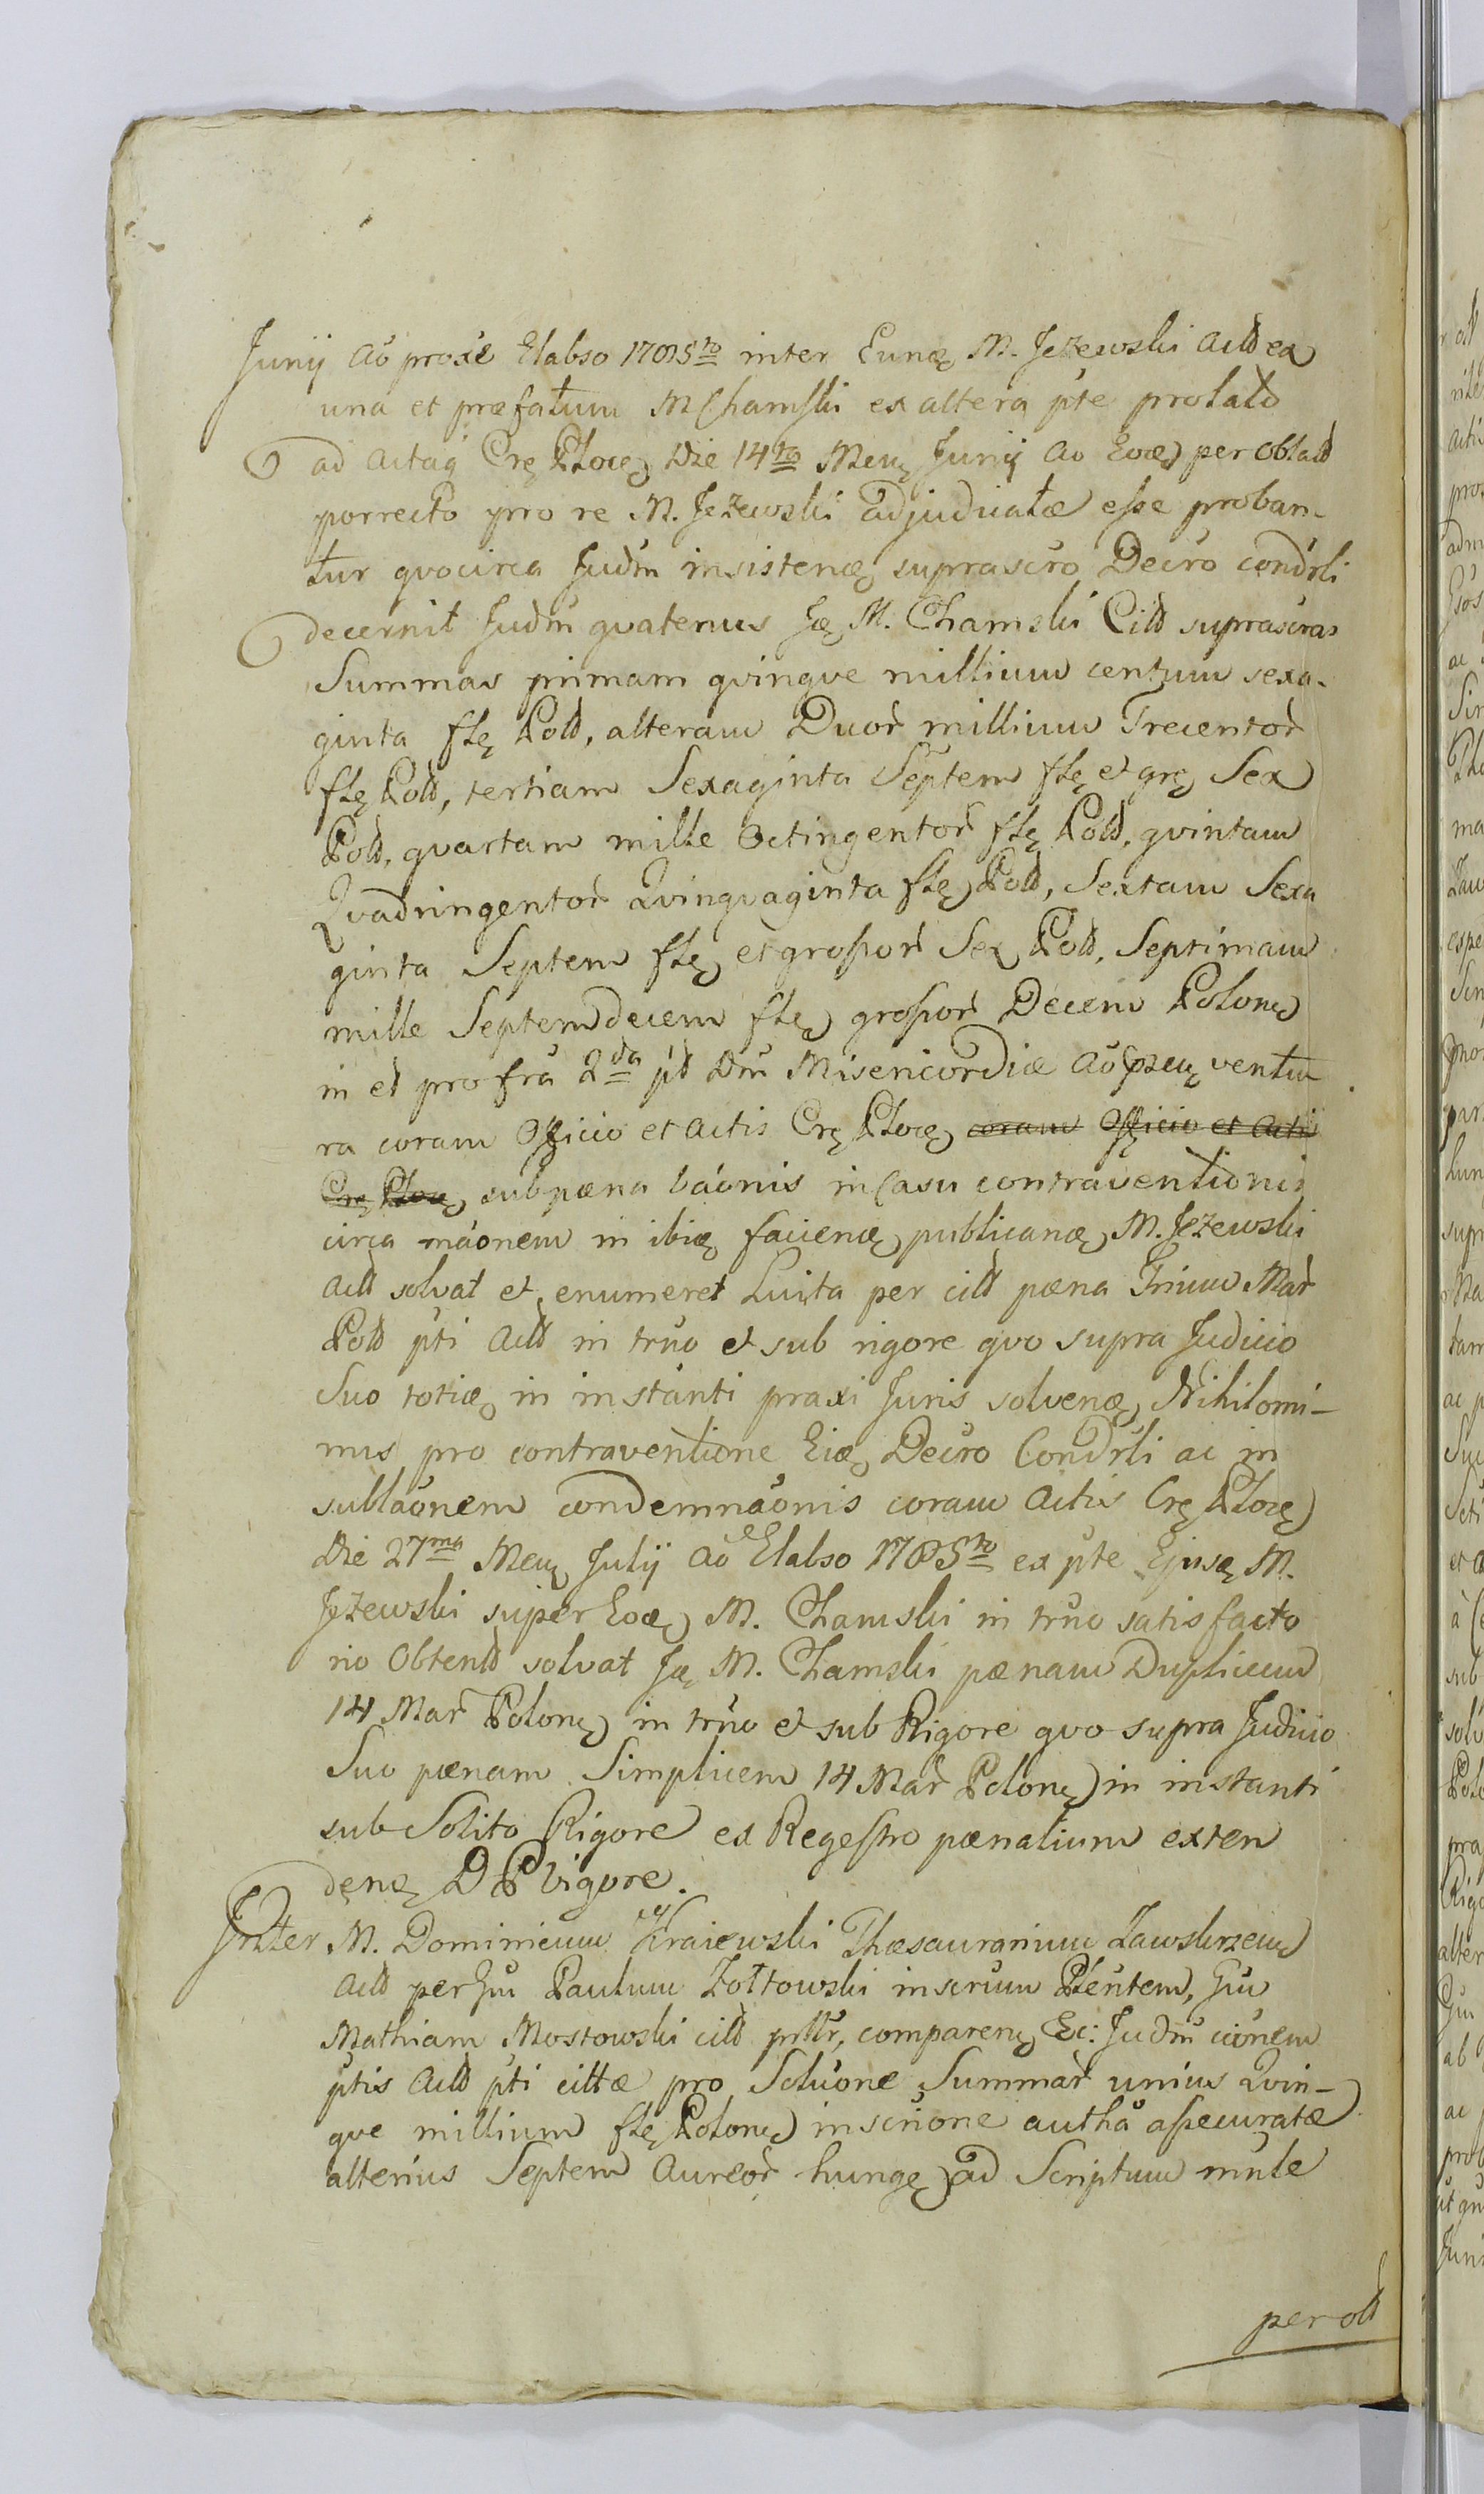 Junij Ao proxe Elabso 1785to inter Eunę M. Jeżewski Actd ex
una et præfatum M Chamski ex altera pte prolatd
ad actaq Crę Plocę Die 14to Menę Junij Ao Eoę per oblatd
porrecto pro re M. Jeżewski adjudicatæ esse proban-
tur qvocirca Judm insistenę suprascro Decro condrli
decernit Judm qvatenus Ję M. Chamski Citd suprascras
Summas primam qvinqve millium centum sexa-
ginta flę Pold, alteram Duor millium Trecentor
flę Pold, tertiam Sexaginta Septem flę et grę Sex
Pold, qvartam mille Octingentor flę Pold, qvintam
Qvadringentor Qvinqvaginta flę Pold, Sextam Sexa
ginta Septem flę et grossor Sex Pold, Septimam
mille Septemdecem flę grossor Decem Polonę
in et pro fra 2da pd Dm Misericordiæ Ao pzenę ventu
ra coram Officio et Actis Crę Plocę coram Officio et Actis
Crę Plocę sub pæna baonis in Casu contraventionis
circa maonem in ibię facienę publicanę M. Jeżewski
Actd solvat et enumeret Luita per citd pæna Trium Mar
Pold pti Actd in trno et sub rigore qvo supra Judicio
Suo totię in instanti praxi Juris solvenę Nihilomi-
nus pro contraventione Eię Decro Condrli ac in
sublaonem condemnaonis coram Actis Crę Plocę
Die 27ma Menę Julij Ao Elabso 1785to ex pte Ejusę M.
Jeżewski super Eoę M. Chamski in trno satisfacto
rio Obtentd solvat Ję M. Chamski pænam Duplicem
14 Mar Polonę in trno et sub Rigore qvo supra Judicio
Suo pænam Simplicem 14 Mar Polonę in instanti
sub Solito Rigore ex Regestro pænalium exten
denę D P vigore.
Inter M. Dominicum Kraiewski Thæsaurarium Zawskrzenę
Actd per Gm Paulum Żołtowski inscrum Plentem, Gm
Mathiam Mostowski citd prllr, comparenę Ec: Judm cionem
ptis Actd pti cittæ pro Soluone Summar unius Qvin-
qve millium flę Polonę inscrione autha assecuratæ
alterius Septem Aureor hungę ad Scriptum mnle
per obl